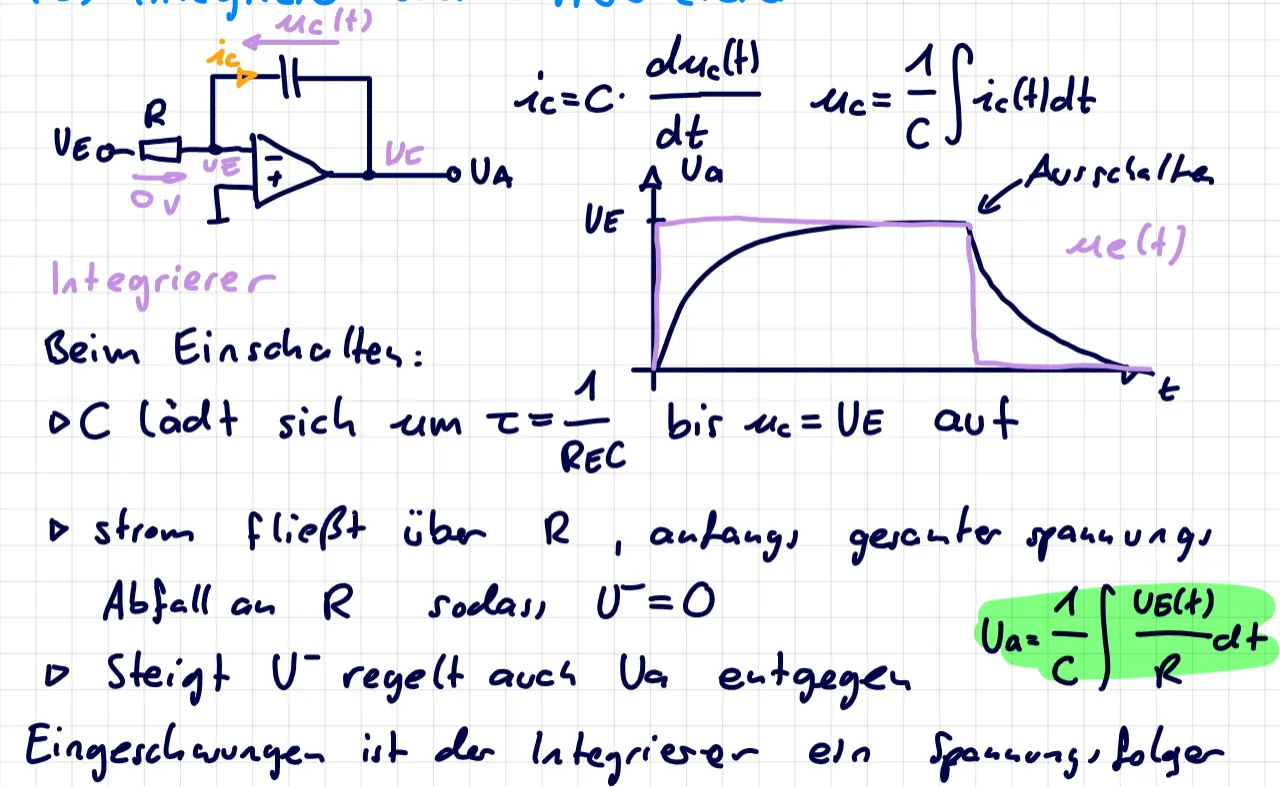 uc(t)
ic
R
UE
UE
UE
0V
- +
UA
ic = C · duc(t)/dt
uc = 1/C ∫ ic(t)dt
Ua
Ausschalten
UE
ue(t)
t
Integrierer
Beim Einschalten:
▷ C lädt sich um τ = 1/REC bis uc = UE auf
▷ strom fließt über R, anfangs gesamter spannungs
Abfall an R sodass U⁻ = 0
Ua = 1/C ∫ UE(t)/R dt
▷ Steigt U⁻ regelt auch Ua entgegen
Eingeschwungen ist der Integrierer ein Spannungsfolger